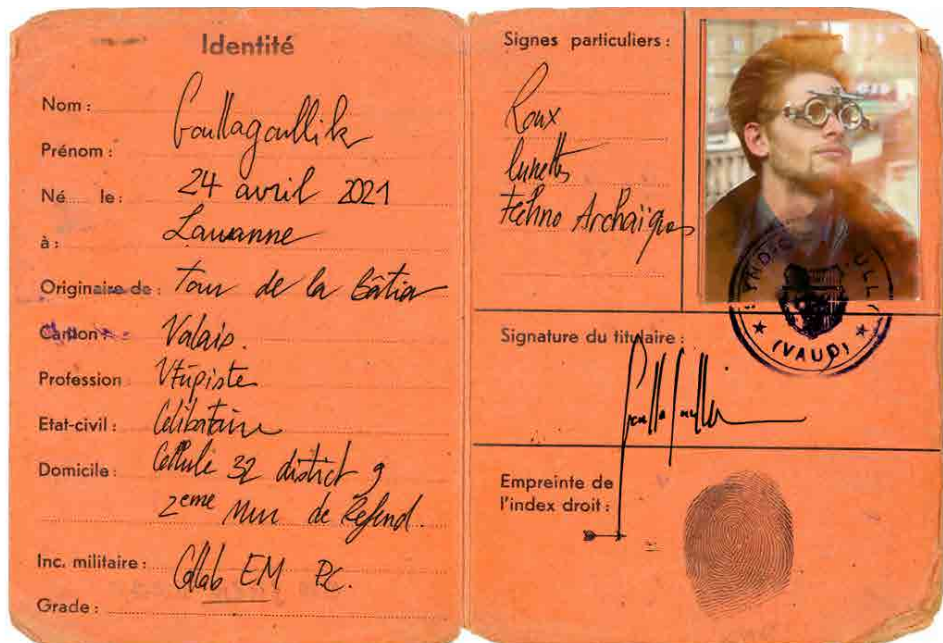 Identité
Nom :
Prénom : Goullagoullik
Né le : 24 avril 2021
à : Lausanne
Originaire de : Tour de la Bâtiaz
Canton : Valais.
Profession Utupiste
Etat-civil : Célibataire
Domicile : Cellule 32 district 9
2eme Mur de Refend.
Inc. militaire : Collab EM PC.
Grade :
Signes particuliers :
Roux
lunettes
techno Archaïques
(VAUD)
Signature du titulaire :
Empreinte de
l'index droit :